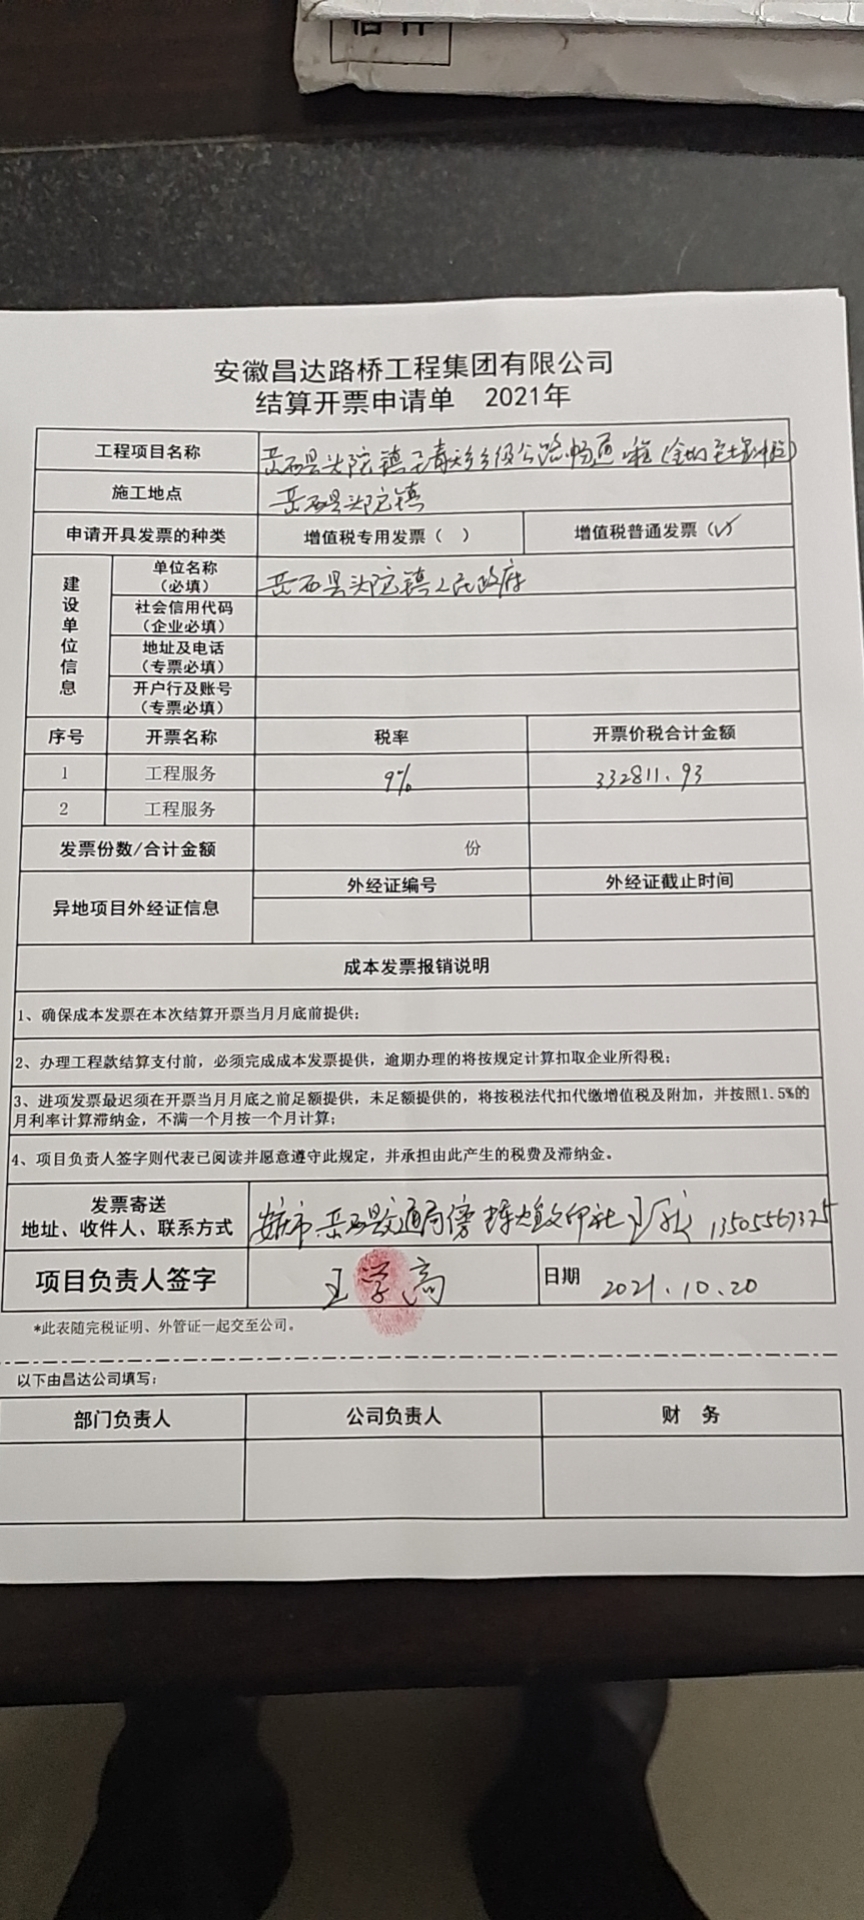 安徽昌达路桥工程集团有限公司
结算开票申请单 2021年
工程项目名称 岳西县头陀镇 乡级公路畅通工程
施工地点 岳西县头陀镇
申请开具发票的种类 增值税专用发票( ) 增值税普通发票(✓)
建设单位信息
单位名称
(必填) 岳西县头陀镇人民政府
社会信用代码
(企业必填)
地址及电话
(专票必填)
开户行及账号
(专票必填)
序号 开票名称 税率 开票价税合计金额
1 工程服务 9% 332811.93
2 工程服务
发票份数/合计金额 份
异地项目外经证信息 外经证编号 外经证截止时间
成本发票报销说明
1、确保成本发票在本次结算开票当月月底前提供;
2、办理工程款结算支付前,必须完成成本发票提供,逾期办理的将按规定计算扣取企业所得税;
3、进项发票最迟须在开票当月月底之前足额提供,未足额提供的,将按税法代扣代缴增值税及附加,并按照1.5%的
月利率计算滞纳金,不满一个月按一个月计算;
4、项目负责人签字则代表已阅读并愿意遵守此规定,并承担由此产生的税费及滞纳金。
发票寄送
地址、收件人、联系方式 安庆市岳西县交通局旁 文印社 13505567375
项目负责人签字 王学高 日期 2021.10.20
*此表随完税证明、外管证一起交至公司。
以下由昌达公司填写:
部门负责人 公司负责人 财 务